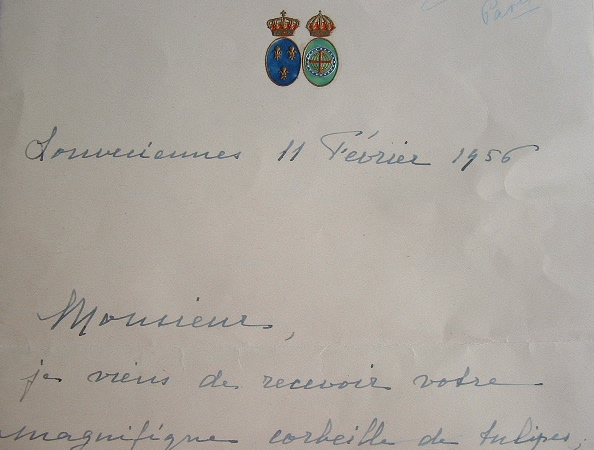 Louveciennes 11 Février 1956
Monsieur,
je viens de recevoir votre
magnifique corbeille de tulipes,